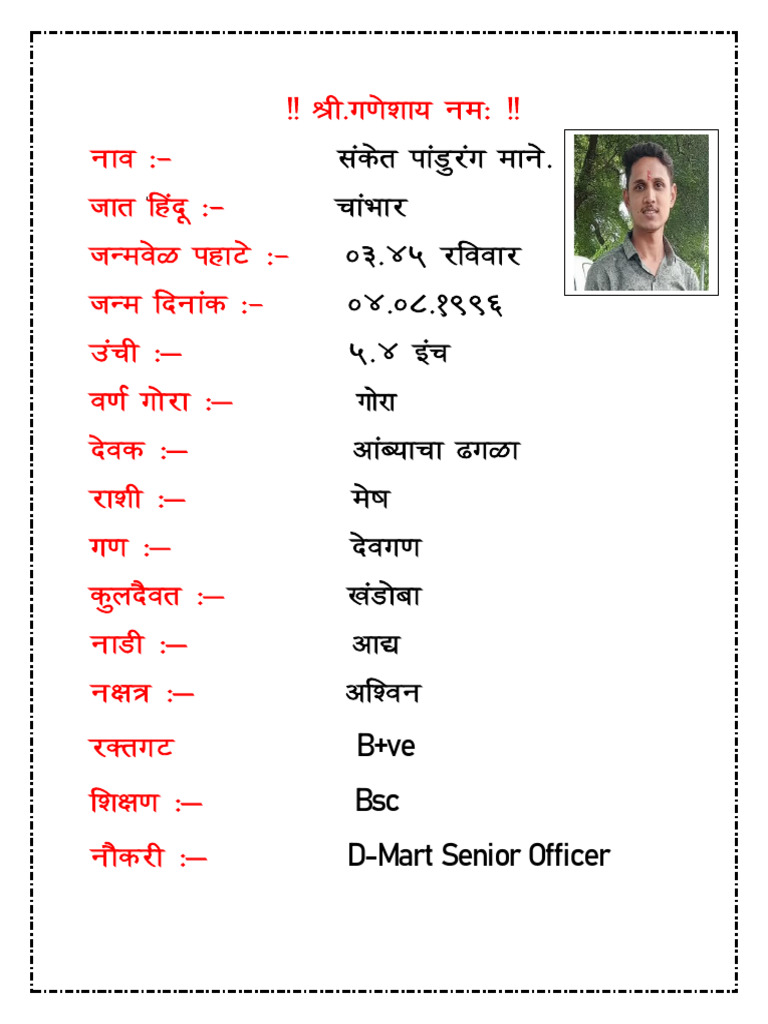 !! श्री.गणेशाय नमः !!
नाव :- संकेत पांडुरंग माने.
जात हिंदू :- चांभार
जन्मवेळ पहाटे :- ०३.४५ रविवार
जन्म दिनांक :- ०४.०८.१९९६
उंची :– ५.४ इंच
वर्ण गोरा :– गोरा
देवक :– आंब्याचा ढगळा
राशी :– मेष
गण :– देवगण
कुलदैवत :– खंडोबा
नाडी :– आद्य
नक्षत्र :– अश्विन
रक्तगट B+ve
शिक्षण :– Bsc
नौकरी :– D-Mart Senior Officer